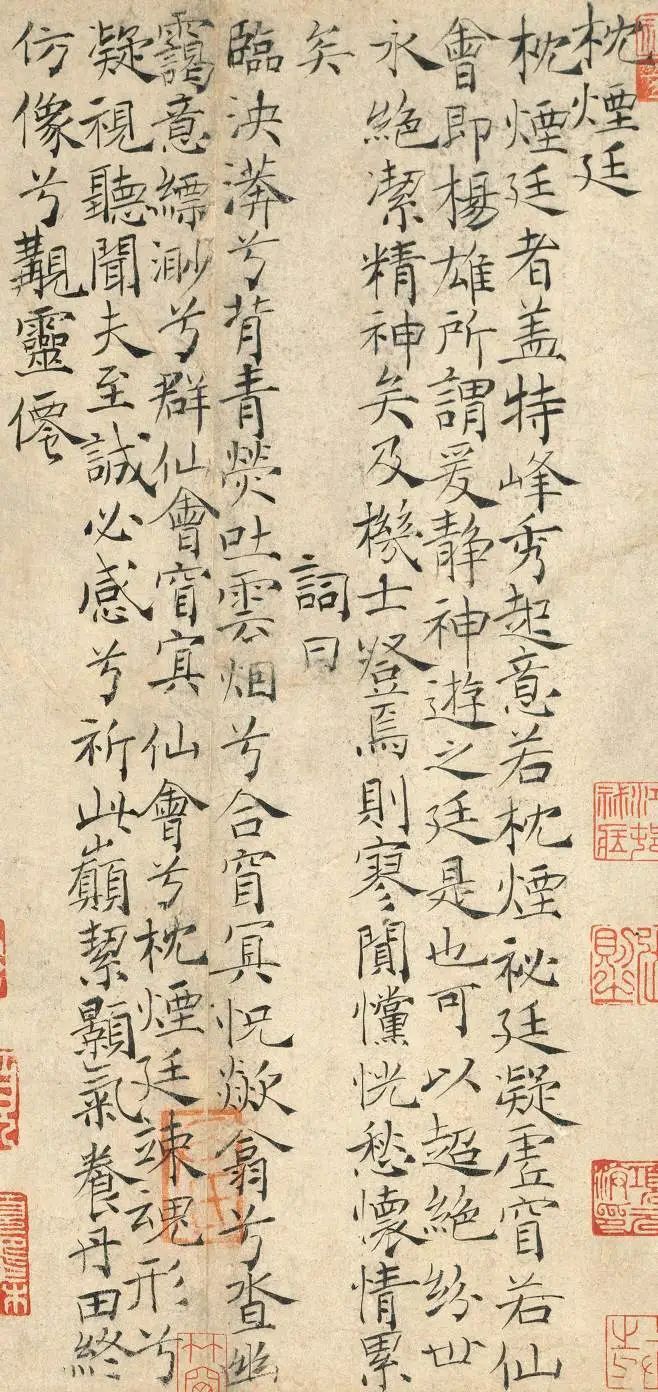 枕煙廷
枕煙廷者盖特峰秀起意若枕煙秘廷凝虚窅若仙
會即楊雄所謂爰静神遊之廷是也可以超絕紛世
永絕潔精神矣及機士登焉則寥闃懭恍愁懷情累
矣
詞曰
臨泱漭兮背青熒吐雲烟兮合窅冥怳欻翕兮沓幽
靄意縹渺兮群仙會窅冥仙會兮枕煙廷竦魂形兮
凝視聽聞夫至誠必感兮祈此巔絜顥氣養丹田終
仿像兮覯靈僊